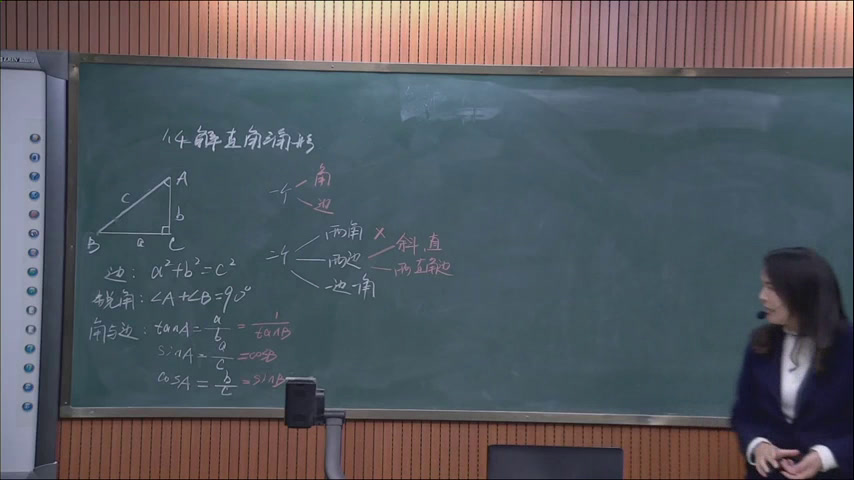 1.4 解直角三角形
A
c
b
B
a
C
边: a²+b²=c²
锐角: ∠A+∠B=90°
角与边: tanA=a/b=1/tanB
sinA=a/c=cosB
cosA=b/c=sinB
一个
角
边
二个
两角 ×
两边
斜, 直
两直角边
一边一角